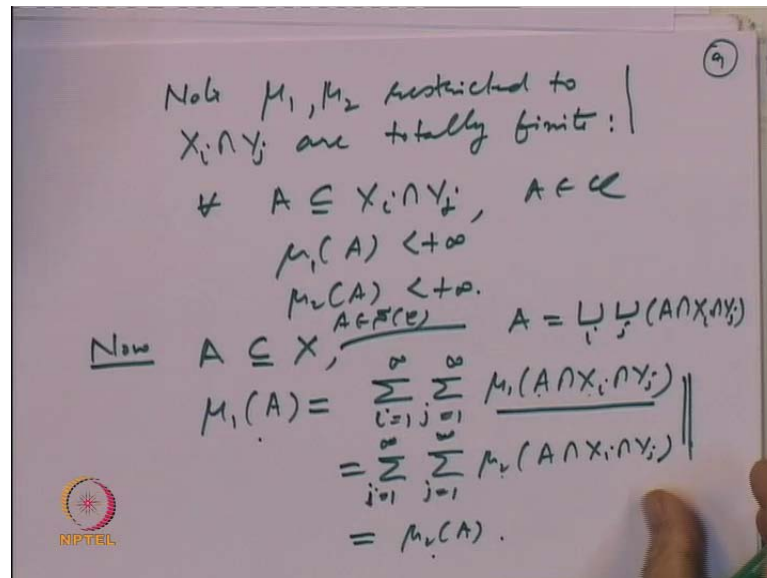 9
Note μ₁, μ₂ restricted to
Xᵢ ∩ Yⱼ are totally finite :
∀ A ⊆ Xᵢ ∩ Yⱼ, A ∈
μ₁(A) < +∞
μ₂(A) < +∞.
Now A ⊆ X, A ∈ 𝒮(𝒞) A = ⋃ᵢ ⋃ⱼ (A ∩ Xᵢ ∩ Yⱼ)
μ₁(A) = ∑_{i=1}^{∞} ∑_{j=1}^{∞} μ₁(A ∩ Xᵢ ∩ Yⱼ)
= ∑_{i=1}^{∞} ∑_{j=1}^{∞} μ₂(A ∩ Xᵢ ∩ Yⱼ)
= μ₂(A).
NPTEL